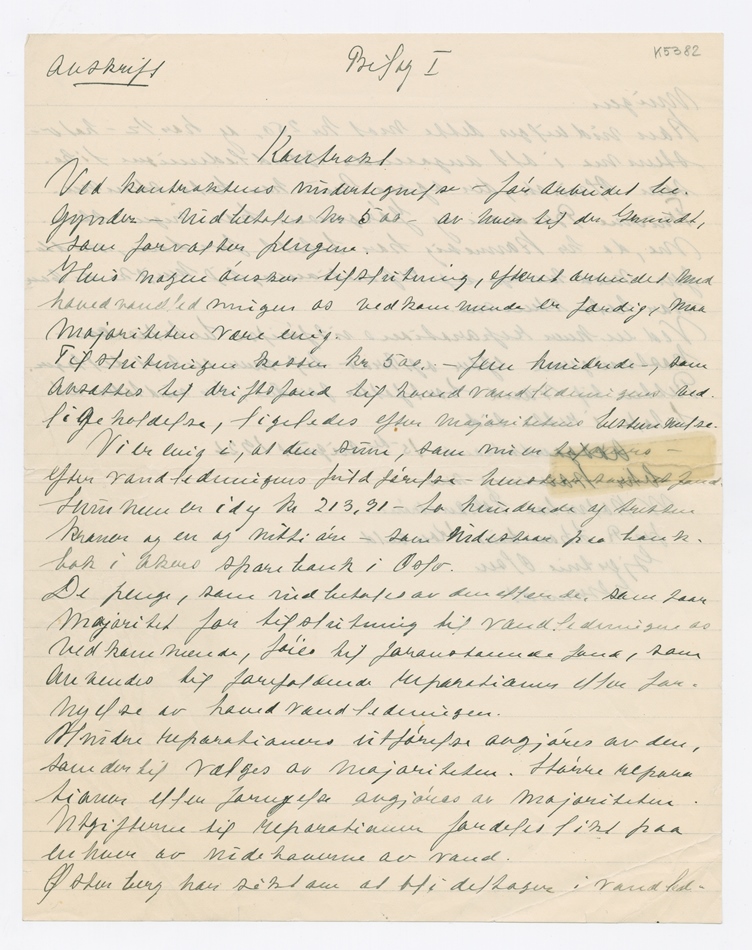 K5382
Avskrift Bilag I
Kontrakt
Ved kontraktens undertegnelse – før arbeidet be-
gynder – indbetales kr 500 – av hver til dr Grundt,
som forvalter pengene.
Hvis nogen ønsker tilslutning, efterat arbeidet med
hovedvandledningen os vedkommende er færdig, maa
majoriteten være enig.
Tilslutningen koster kr 500 – fem hundrede –, som
avsættes til driftsfond til hovedvandledningens ved-
ligeholdelse, ligeledes efter majoritetens bestemmelse.
Vi er enig i, at den sum, som vi er
efter vandledningens fuldførelse – fond.
Summen er idag kr 213,91 – to hundrede og tretten
kroner og en og nitti øre – som indestaar paa bank-
bok i Akers sparebank i Oslo.
De penge, som indbetales av den eller de som faar
majoritet for tilslutning til vandledningen os
vedkommende, føies til foranstaaende fond, som
anvendes til forefaldende reparationer eller for-
nyelse av hovedvandledningen.
Mindre reparationers utførelse avgjøres av den,
som dertil vælges av majoriteten. Større repara
tioner eller fornyelse avgjøres av majoriteten.
Utgifterne til reparationer fordeles likt paa
enhver av indehaverne av vand.
Østerberg har søkt om at bli deltager i vandled-